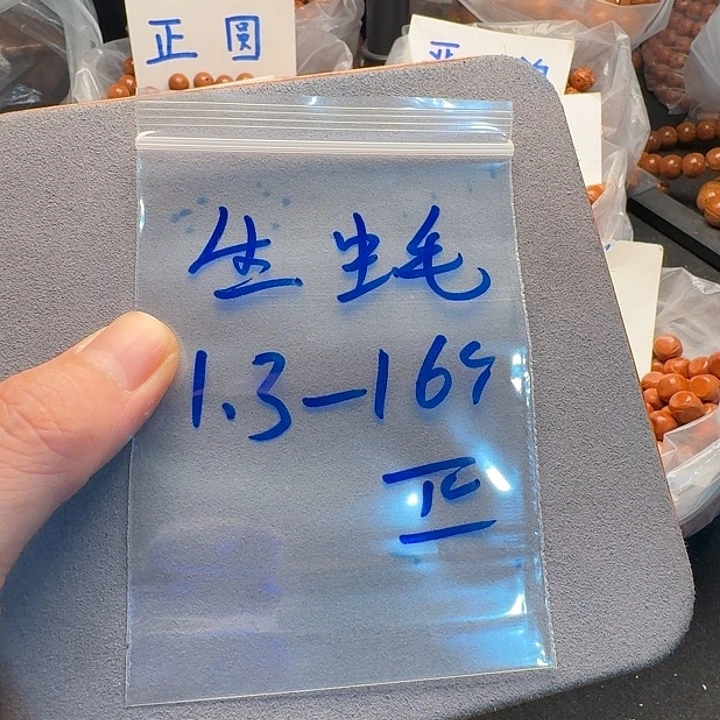 正圆
生 生毛
1.3-169
正